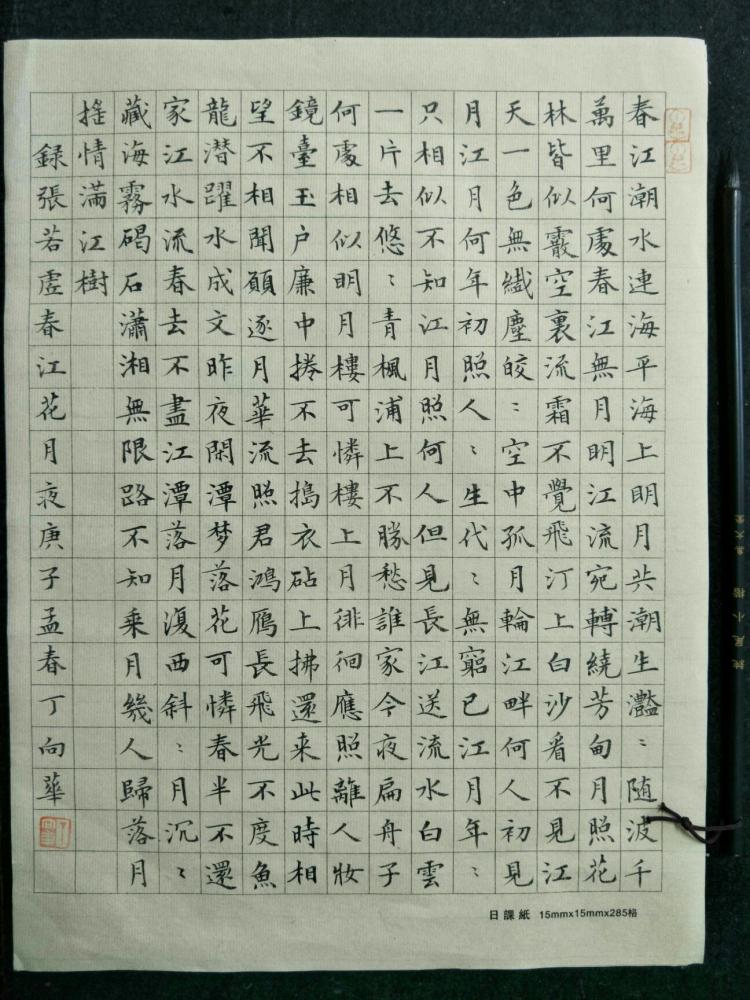 春江潮水連海平海上明月共潮生灩〻随波千
萬里何處春江無月明江流宛轉繞芳甸月照花
林皆似霰空裏流霜不覺飛汀上白沙看不見江
天一色無纖塵皎〻空中孤月輪江畔何人初見
月江月何年初照人〻生代〻無窮已江月年〻
只相似不知江月照何人但見長江送流水白雲
一片去悠〻青楓浦上不勝愁誰家今夜扁舟子
何處相似明月樓可憐樓上月徘徊應照離人妝
鏡臺玉户廉中捲不去搗衣砧上拂還来此時相
望不相聞願逐月華流照君鴻鴈長飛光不度魚
龍潜躍水成文昨夜閑潭梦落花可憐春半不還
家江水流春去不盡江潭落月復西斜〻月沉〻
藏海霧碣石瀟湘無限路不知乘月幾人歸落月
摇情滿江樹
録張若虚春江花月夜庚子孟春丁向華
日課紙 15mmx15mmx285格
小楷